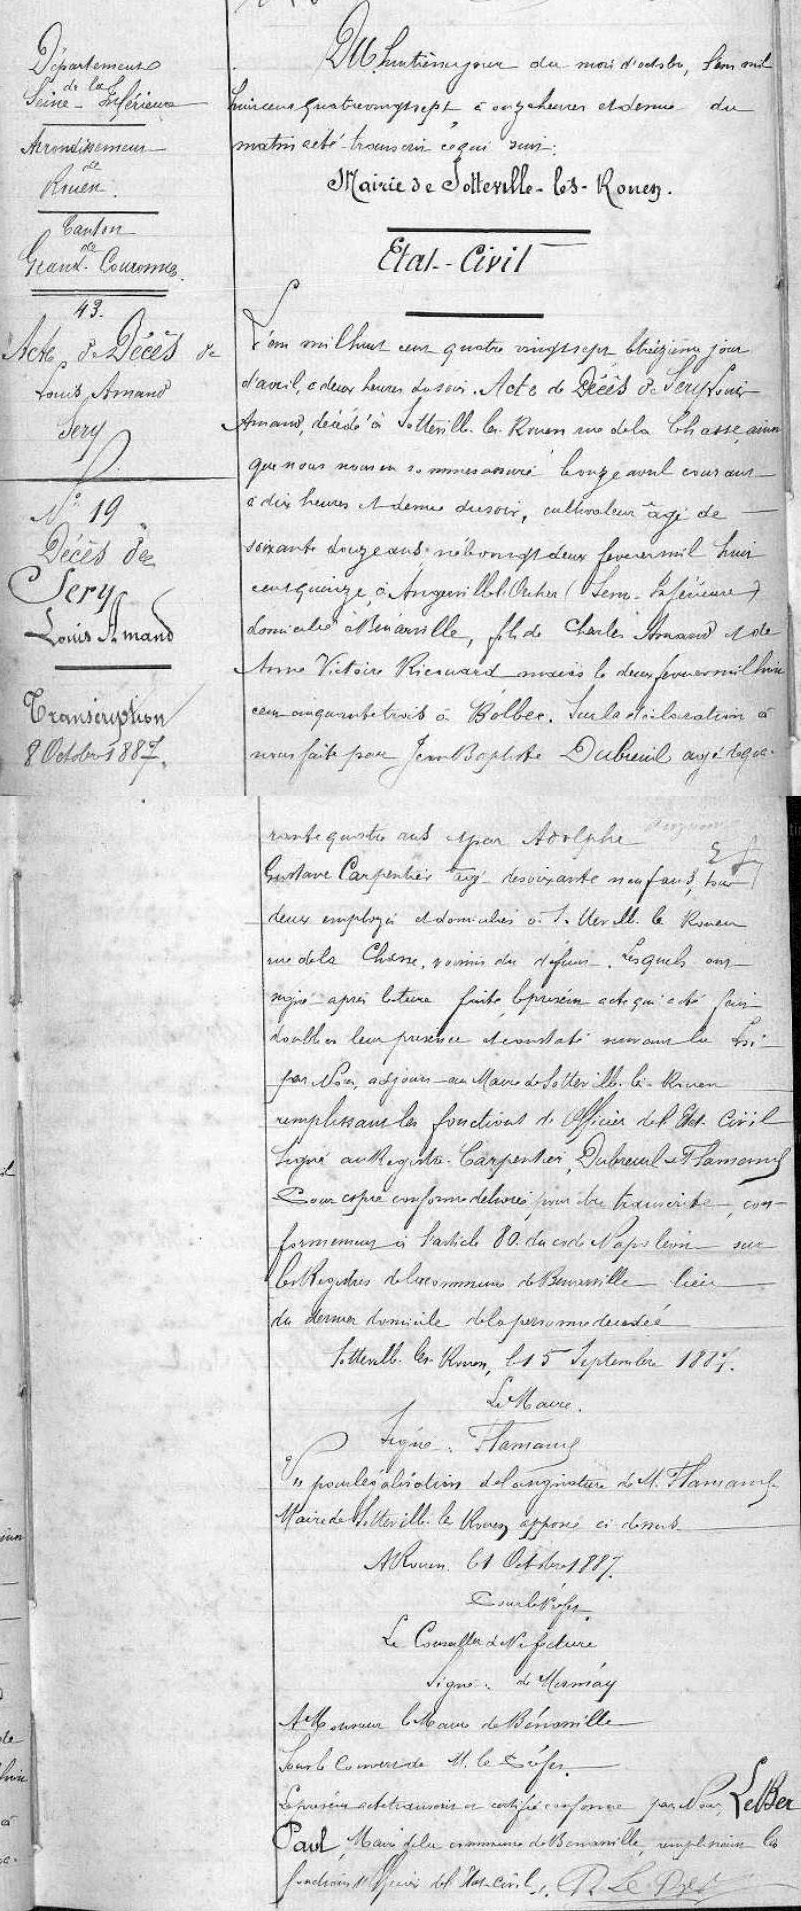 Département
de la
Seine-Inférieure
Arrondissement
de
Rouen.
Canton
de
Grand-Couronne.
43.
Acte de Décès de
Louis Amand
Sery
N° 19
Décès de
Sery
Louis Amand
Transcription
8 Octobre 1887.
Du huitième jour du mois d'octobre, l'an mil
huit cent quatre vingt sept, à onze heures et demie du
matin a été transcrit ce qui suit:
Mairie de Sotteville-lès-Rouen.
Etat-Civil
L'an mil huit cent quatre vingt sept le treizième jour
d'avril, à deux heures du soir. Acte de Décès de Sery Louis
Amand, décédé à Sotteville-les-Rouen rue de la Chasse, ainsi
que nous nous en sommes assuré le onze avril courant
à dix heures et demie du soir, cultivateur âgé de
soixante douze ans, né le vingt deux fevrier mil huit
cent quinze, à Angerville l'Orcher (Seine-Inférieure)
domicilié à Bénarville, fils de Charles Amand et de
Anne Victoire Ricouard marié le deux fevrier mil huit
cent cinquante trois à Bolbec. Sur la déclaration à
nous faite par Jean Baptiste Dubreuil âgé de qua-
rante quatre ans et par Adolphe
Gustave Carpentier âgé de soixante neuf ans, tous
deux employés et domiciliés à Sotteville les Rouen
rue de la Chasse, voisins du défunt. Lesquels ont
signé après lecture faite le présent acte qui a été fait
double en leur présence et constaté suivant la Loi
par Nous, adjoint au Maire de Sotteville-lès-Rouen
remplissant les fonctions de Officier de l'Etat-Civil
Signé au Registre. Carpentier, Dubreuil et Flamand
Pour copie conforme délivrée pour être transcrite, con-
formément à l'article 80 du code Napoléon sur
les Registres de la commune de Bénarville lieu
du dernier domicile de la personne décédée
Sotteville les Rouen, le 15 Septembre 1887.
Le Maire.
Signé: Flamand
pour légalisation de la signature de M. Flamand
Maire de Sotteville les Rouen apposée ci dessus
A Rouen, le 1 Octobre 1887.
Pour le Préfet.
Le Conseiller de Préfecture
Signé: de
A Monsieur le Maire de Bénarville
Sous le Couvert de M. le Préfet.
Le présent acte transcrit et certifié conforme par Nous, LeBer
Paul, Maire de la commune de Bénarville, remplissant les
fonctions d'Officier de l'Etat-civil. P. Le Ber